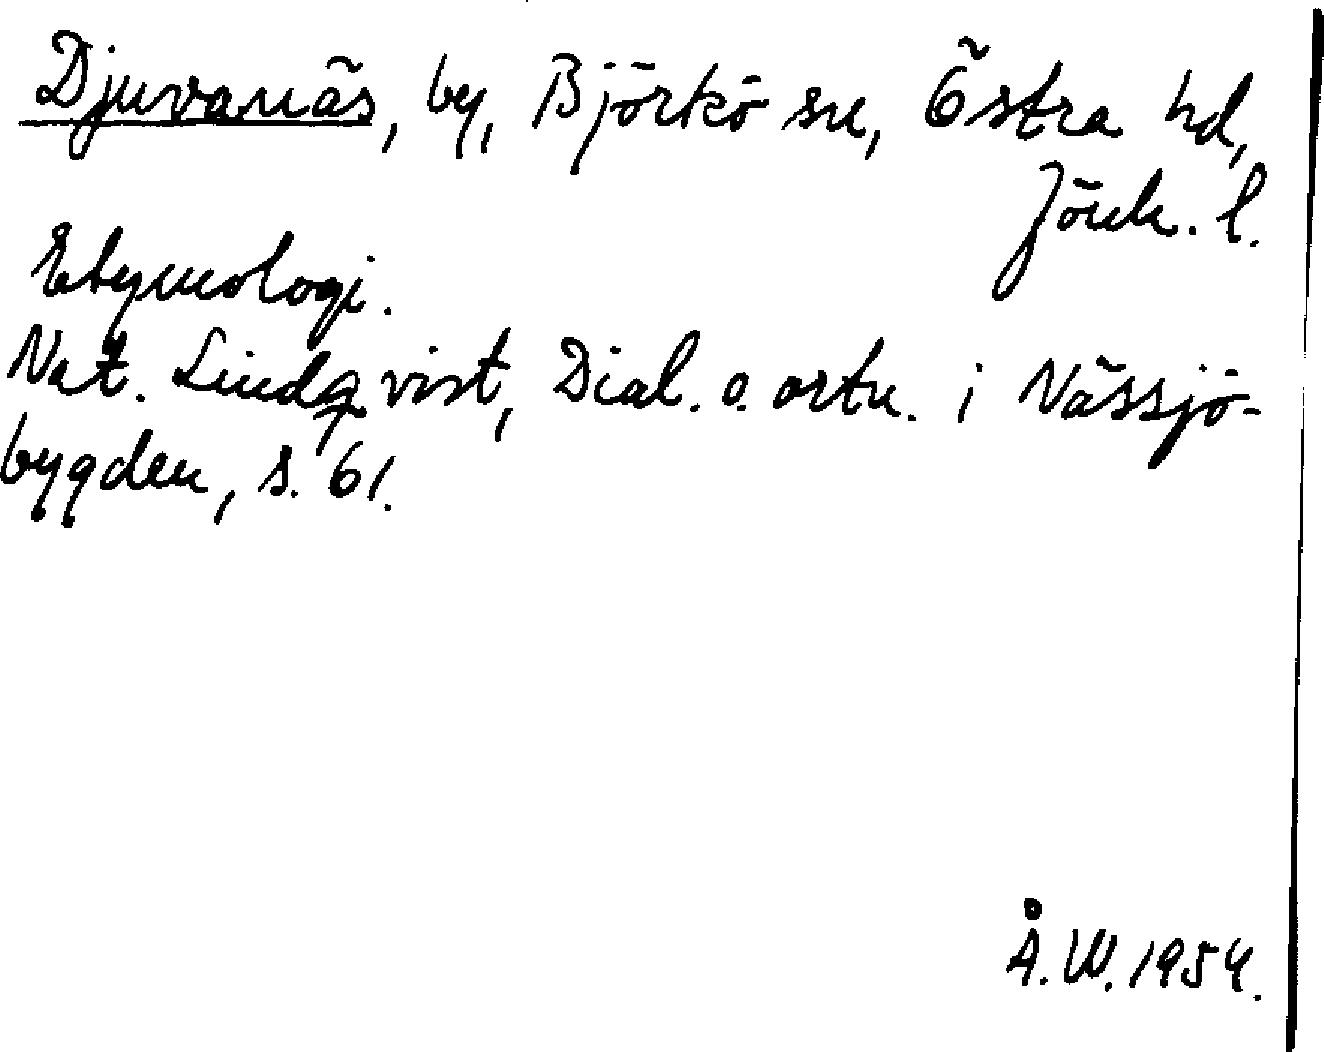 Djuvanäs, by, Björkö sn, Östra hd,
Jönk. l.
Etymologi.
Nat. Lindqvist, Dial. o. ortn. i Nässjö-
bygden, s. 61.
Å. W. 1954.